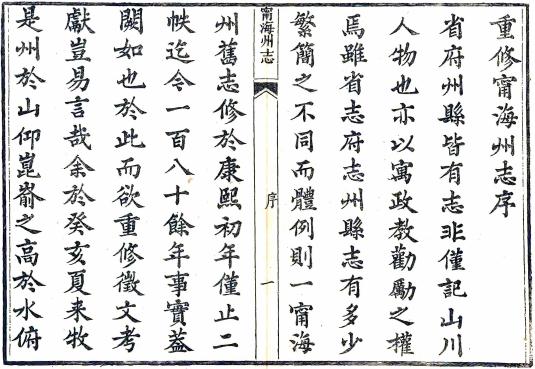 重修甯海州志序
省府州縣皆有志非僅記山川
人物也亦以寓政教勸勵之權
焉雖省志府志州縣志有多少
繁簡之不同而體例則一甯海
甯海州志
序
一
州舊志修於康熙初年僅止二
帙迄今一百八十餘年事實蓋
闕如也於此而欲重修徵文考
獻豈易言哉余於癸亥夏来牧
是州於山仰崑嵛之高於水俯